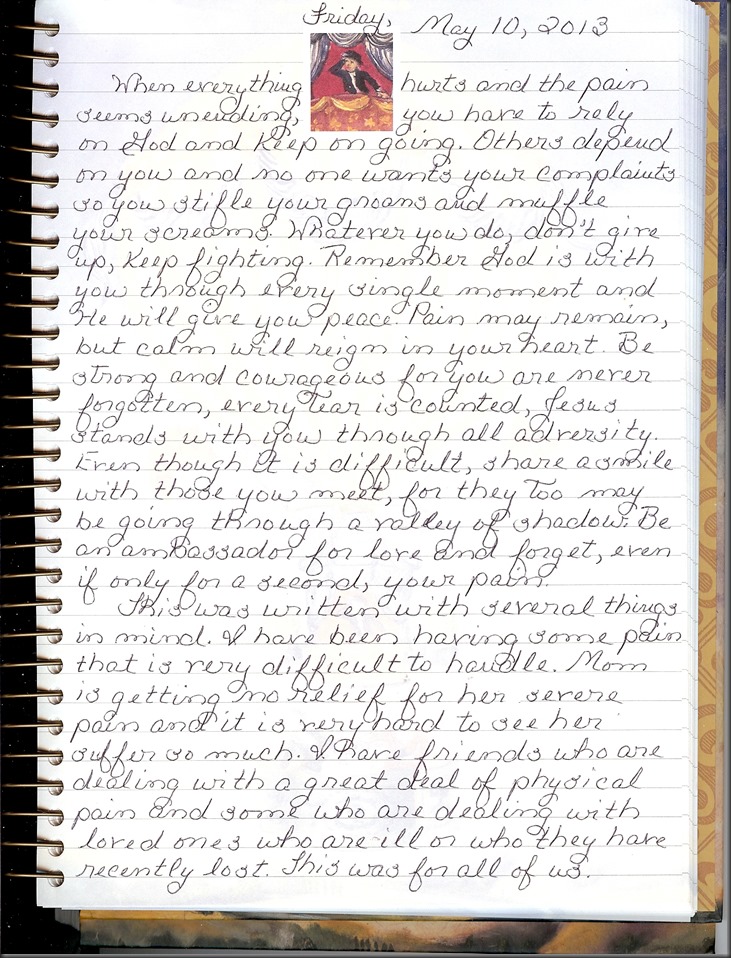 Friday, May 10, 2013
When everything hurts and the pain
seems unending, you have to rely
on God and keep on going. Others depend
on you and no one wants your complaints
so you stifle your groans and muffle
your screams. Whatever you do, don't give
up, keep fighting. Remember God is with
you through every single moment and
He will give you peace. Pain may remain,
but calm will reign in your heart. Be
strong and courageous for you are never
forgotten, every tear is counted, Jesus
stands with you through all adversity.
Even though it is difficult, share a smile
with those you meet, for they too may
be going through a valley of shadow. Be
an ambassador for love and forget, even
if only for a second, your pain.
This was written with several things
in mind. I have been having some pain
that is very difficult to handle. Mom
is getting no relief for her severe
pain and it is very hard to see her
suffer so much. I have friends who are
dealing with a great deal of physical
pain and some who are dealing with
loved ones who are ill or who they have
recently lost. This was for all of us.